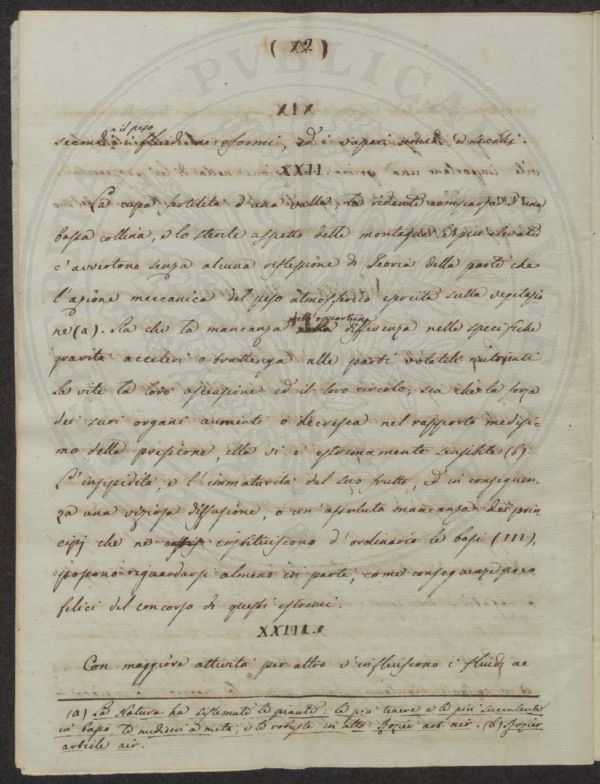 (12)
XIX
il peso
secondi i fluidi aeroformi, ed i vapori umidi e secchi.
XXII.
La cupa fertilità d'una valle, la ridente comparsa d'una
bassa collina, e lo sterile aspetto delle montagne più elevate
c'avvertono senza alcuna riflessione di Teoria della parte che
l'azione meccanica del peso atmosferico esercita sulla vegetazio
ne (a). Sia che la mancanza dell'opportuna differenza nelle specifiche
gravità acceleri o trattenga alle parti volatili nutrienti
la vite la loro ascensione ed il loro circolo, sia che la forza
dei suoi organi aumenti o decresca nel rapporto medesi-
mo della pressione, ella vi è estremamente sensibile (b)
L'insipidità, e l'immaturità del suo frutto, ed in conseguen-
za una viziosa diffusione, o un'assoluta mancanza dei prin-
cipj che ne costituiscono d'ordinario le basi (III),
possono riguardarsi almeno in parte, come conseguenze poco
felici del concorso di questi estremi.
XXIII.
Con maggiore attività per altro v'influiscono i fluidi ae
(a) La Natura ha sistemate le piante: le più tenere e le più succulente
in basso, le mediocri a metà, e le robuste in alto. Rozier art. air. (b) Rozier
article air.